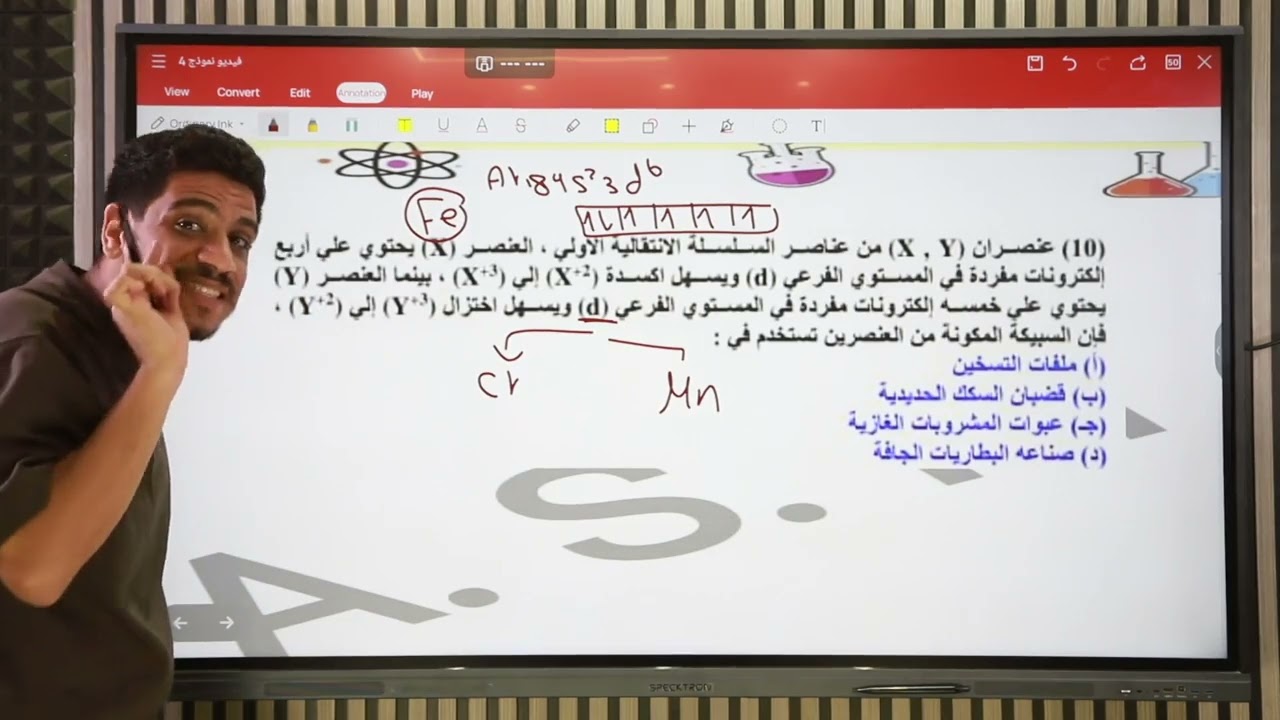 فيديو نموذج 4
50
View Convert Edit Annotation Play
Ordinary Ink
Ar18 4s² 3d⁶
Fe
(10) عنصران (X , Y) من عناصر السلسلة الانتقالية الأولي ، العنصر (X) يحتوي علي أربع
إلكترونات مفردة في المستوي الفرعي (d) ويسهل اكسدة (X⁺²) إلي (X⁺³) ، بينما العنصر (Y)
يحتوي علي خمسه إلكترونات مفردة في المستوي الفرعي (d) ويسهل اختزال (Y⁺³) إلي (Y⁺²) ،
فإن السبيكة المكونة من العنصرين تستخدم في :
Cr Mn
(أ) ملفات التسخين
(ب) قضبان السكك الحديدية
(جـ) عبوات المشروبات الغازية
(د) صناعه البطاريات الجافة
A.S.
SPECKTRON